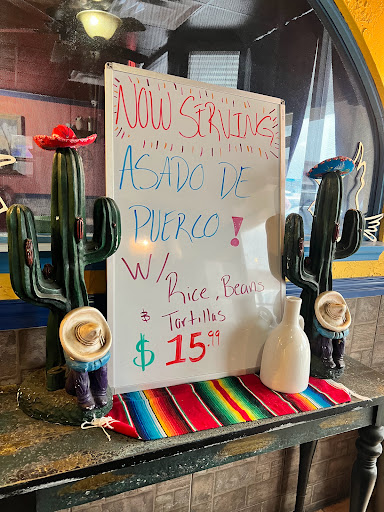 NOW SERVING
ASADO DE
PUERCO !
W/
Rice, Beans
& Tortillas
$ 15.99